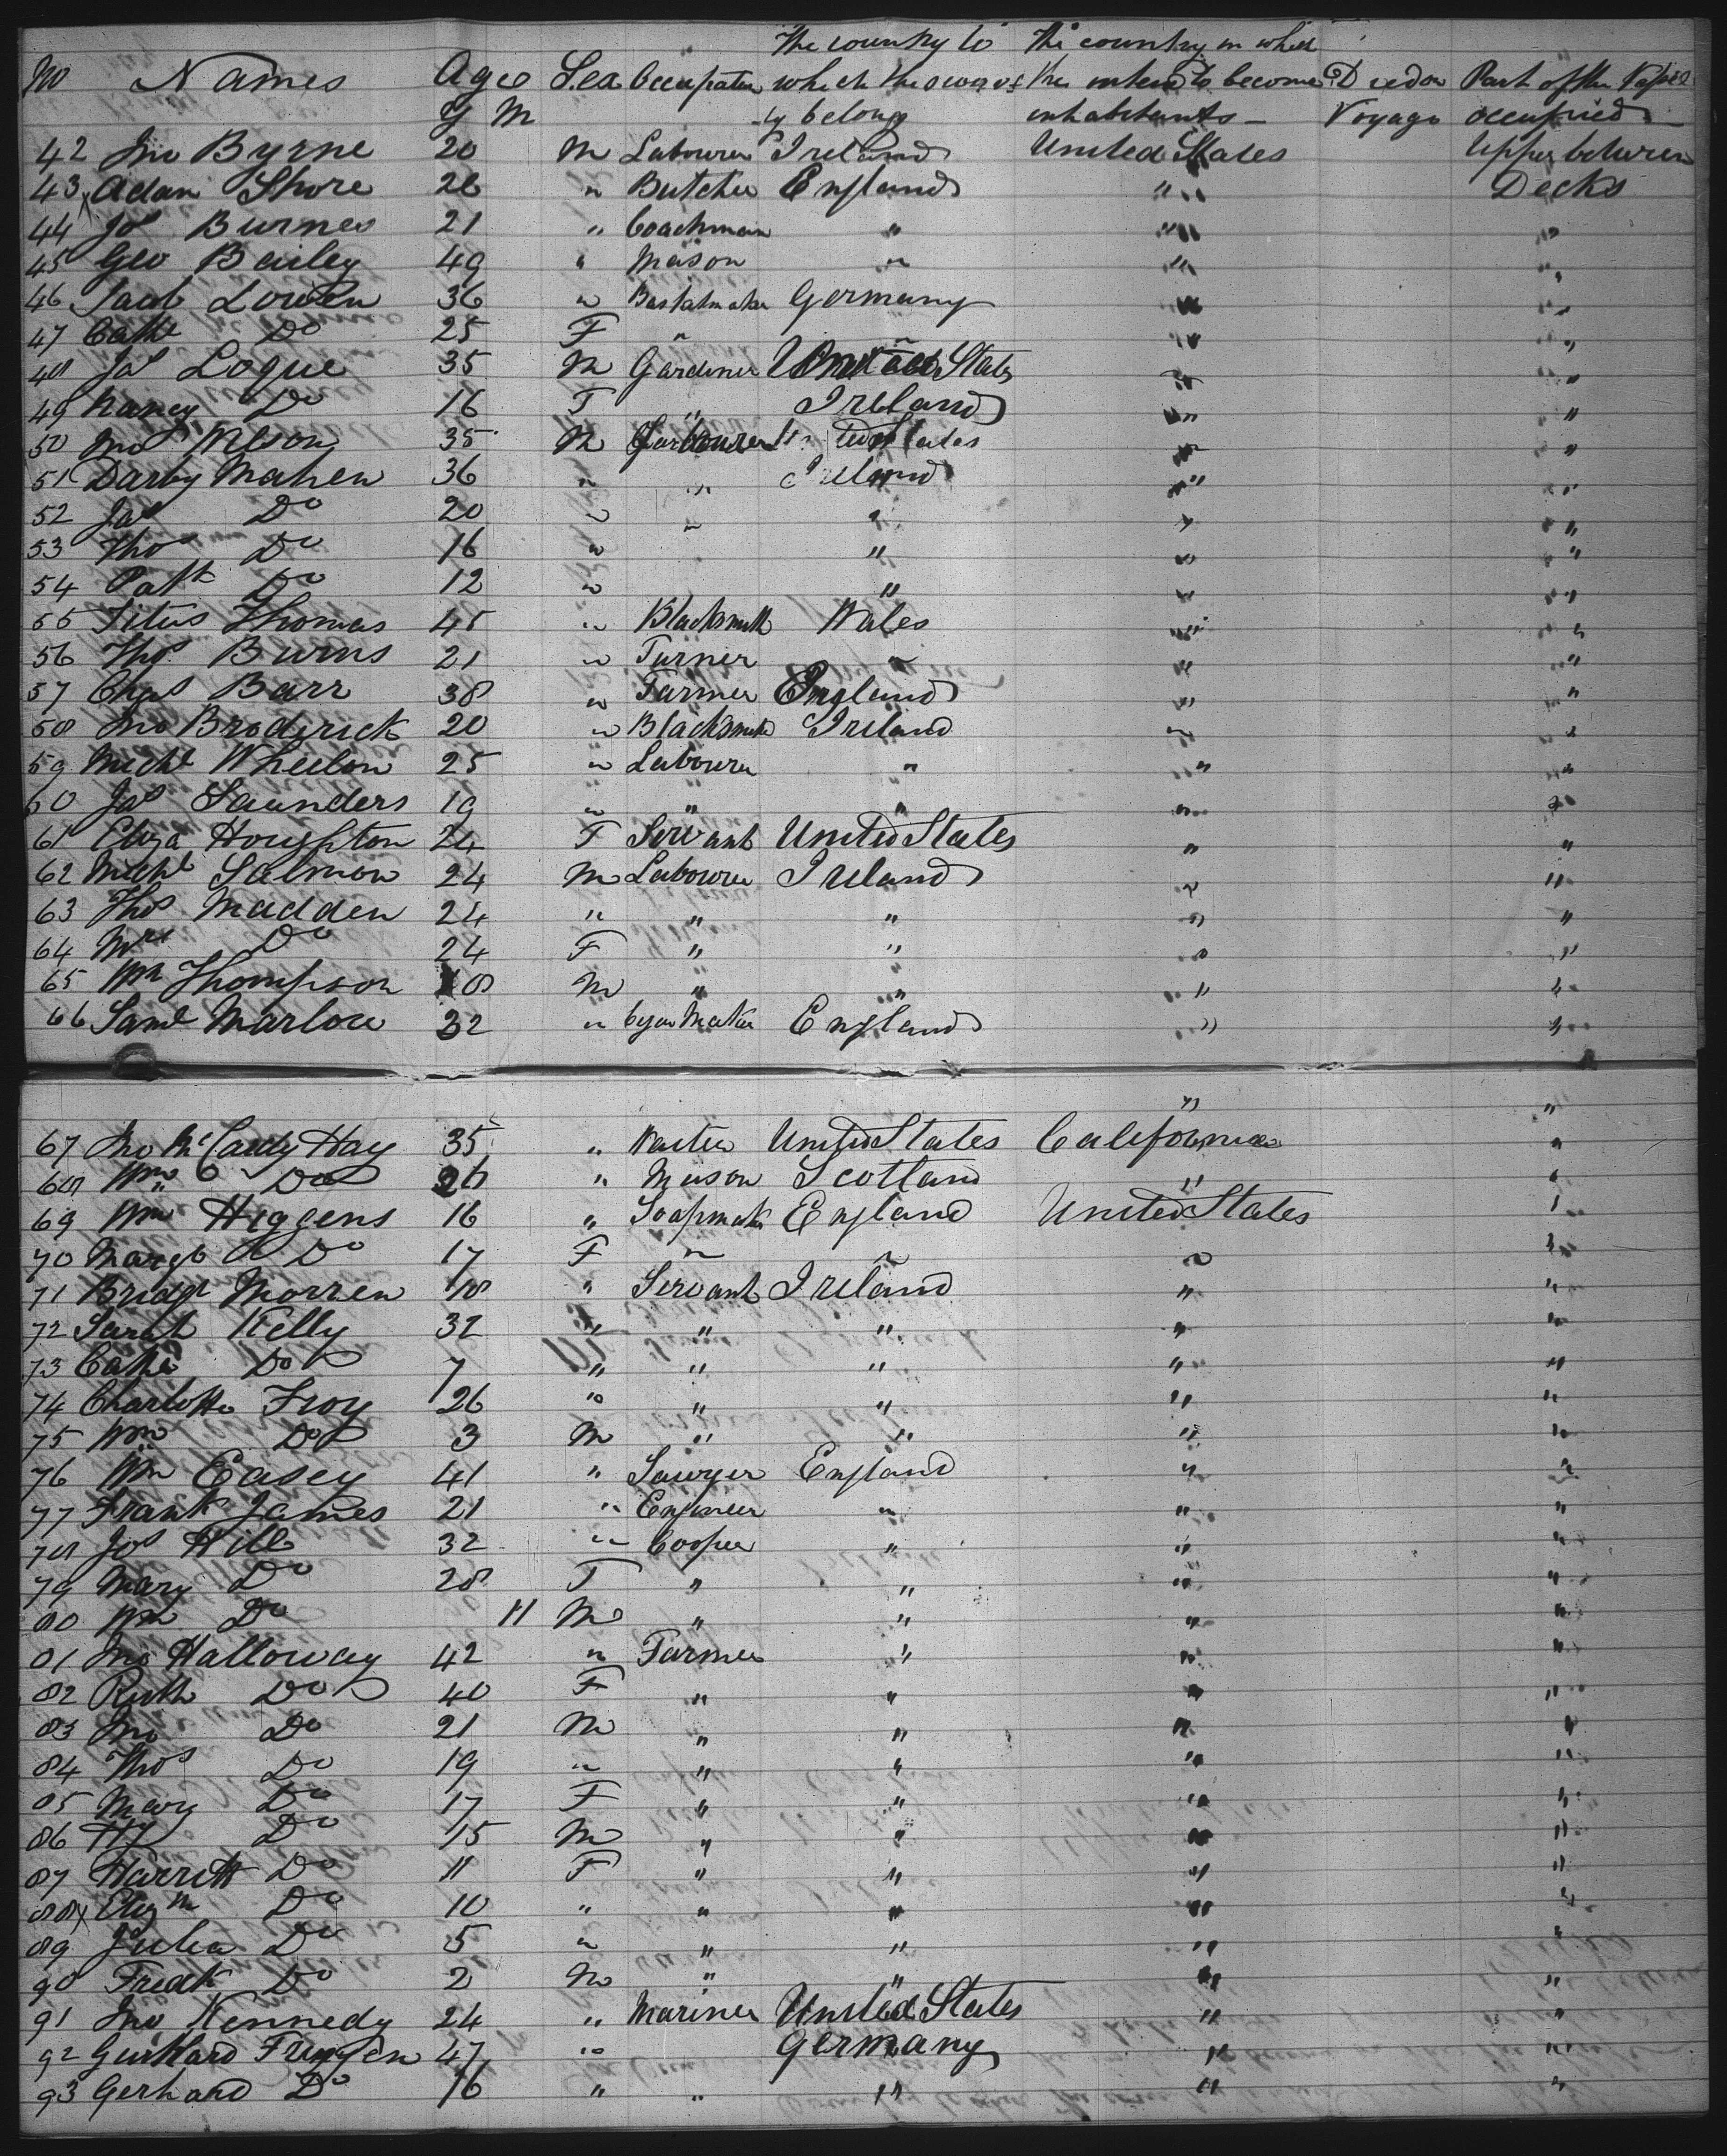 No Names Age Sex Occupation The country to which they severally belong The country in which they intend to become inhabitants Died on Voyage Part of the Vessel occupied
Y M
42 Jno Byrne 20 M Labourer Ireland United States Upper between
43 Adam Shore 28 " Butcher England " Decks
44 Jos Burnes 21 " Coachman " " "
45 Geo Bailey 49 " Mason " " "
46 Jacob Lowen 36 " Basketmaker Germany " "
47 Cathe Do 25 F " " " "
48 Jas Logue 35 M Gardener United States " "
49 Nancy Do 16 F " Ireland " "
50 Jno Wilson 35 M Labourer United States " "
51 Darby Mahen 36 " " Ireland " "
52 Jas Do 20 " " " " "
53 Thos Do 16 " " " "
54 Patk Do 12 " " " "
55 Titus Thomas 45 " Blacksmith Wales " "
56 Thos Burns 21 " Turner " " "
57 Chas Barr 38 " Farmer England " "
58 Jno Broderick 20 " Blacksmith Ireland " "
59 Michl Wheelon 25 " Labourer " " "
60 Jas Saunders 19 " " " " "
61 Eliza Houghton 24 F Servant United States " "
62 Michl Salmon 24 M Labourer Ireland " "
63 Thos Madden 24 " " " " "
64 Mrs Do 24 F " " " "
65 Wm Thompson 18 M " " " "
66 Saml Marlow 32 " Cigar Maker England " "
" "
67 Jno McCardy Hay 35 " Waiter United States California "
68 Wm " Do 26 " Mason Scotland " "
69 Wm Higgens 16 " Soapmaker England United States "
70 Margt Do 17 F " " " "
71 Bridgt Morren 18 " Servant Ireland " "
72 Sarah Kelly 32 " " " " "
73 Cathe Do 7 " " " " "
74 Charlotte Froy 26 " " " " "
75 Wm Do 3 M " " " "
76 Wm Easey 41 " Sawyer England " "
77 Frank James 21 " Engineer " " "
78 Jos Hill 32 " Cooper " " "
79 Mary Do 28 F " " " "
80 Wm Do 11 M " " " "
81 Jno Halloway 42 " Farmer " " "
82 Ruth Do 40 F " " " "
83 Jno Do 21 M " " " "
84 Thos Do 19 " " " " "
85 Mary Do 17 F " " " "
86 Hy Do 15 M " " " "
87 Harriett Do 11 F " " " "
88 Elizth Do 10 " " " " "
89 Julia Do 5 " " " " "
90 Fredk Do 2 M " " " "
91 Jno Kennedy 24 " Mariner United States " "
92 47 " Germany " "
93 Gerhard Do 16 " " " " "